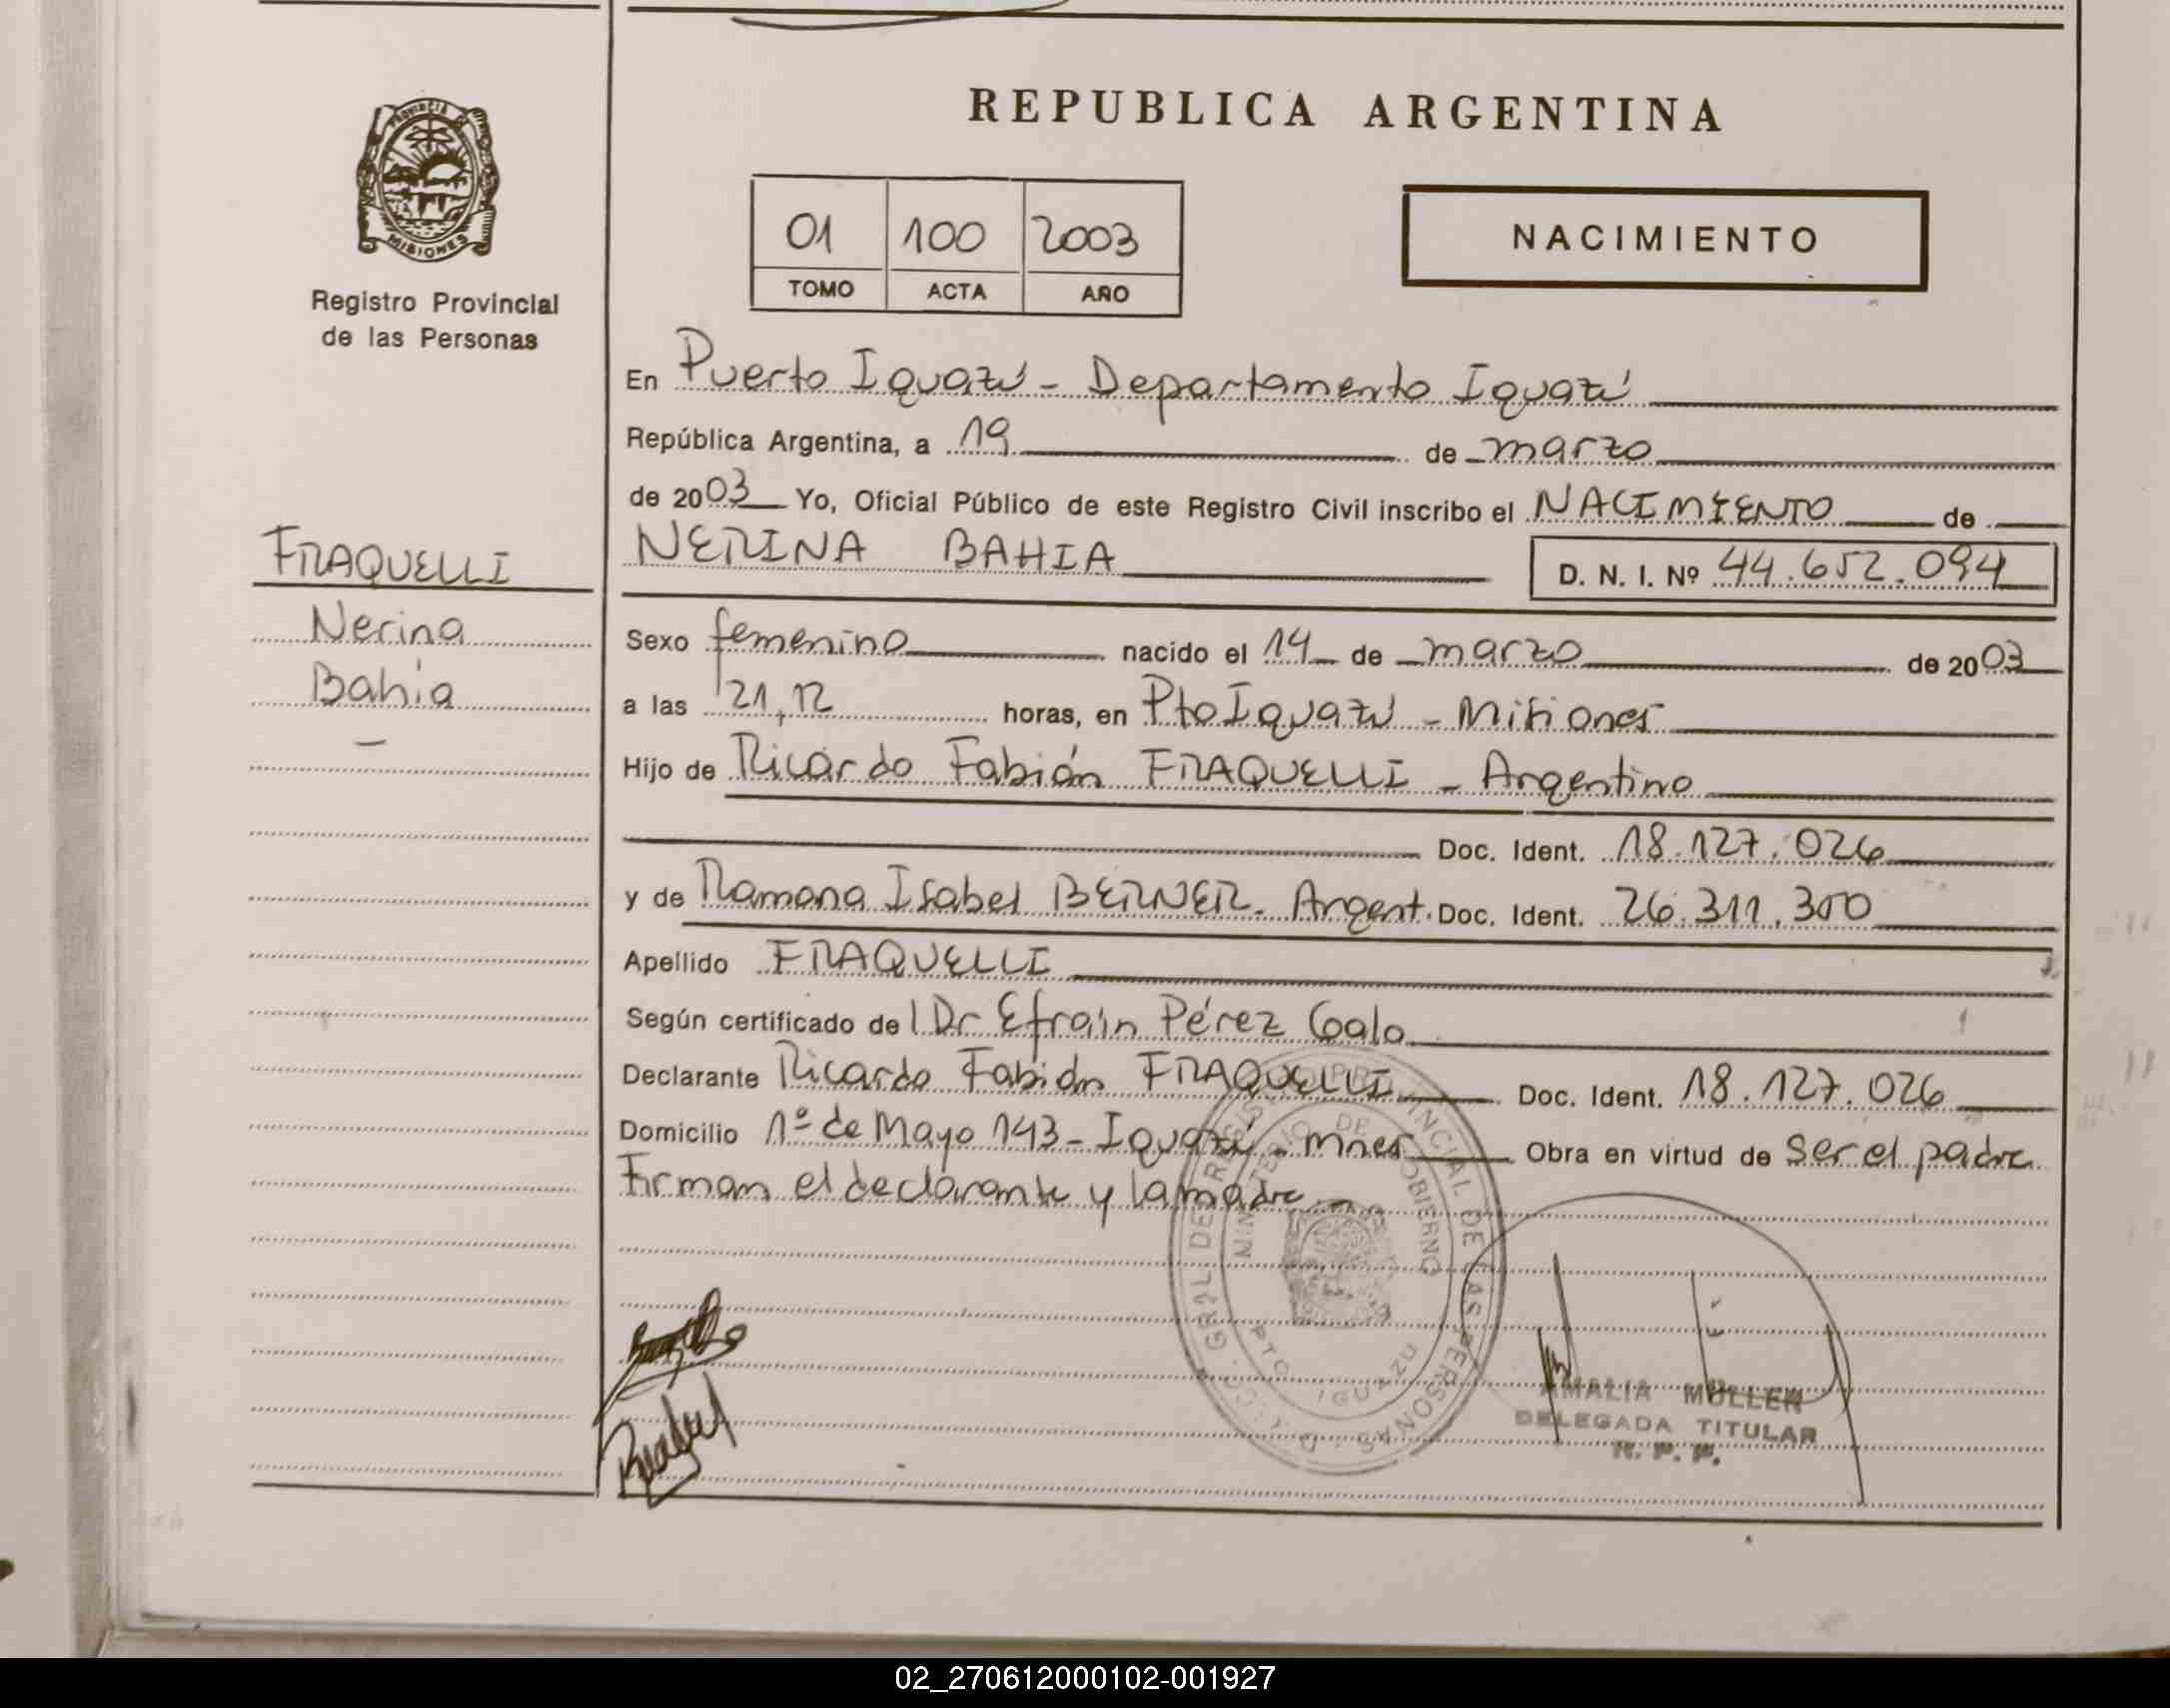 REPUBLICA ARGENTINA
PROVINCIA D MISIONES
Registro Provincial
de las Personas
01 100 2003
TOMO ACTA AÑO
NACIMIENTO
En Puerto Iguazú - Departamento Iguazú
República Argentina, a 19 de marzo
de 2003 Yo, Oficial Público de este Registro Civil inscribo el NACIMIENTO de
NERINA BAHIA D. N. I. Nº 44.652.094
FRAQUELLI
Nerina
Bahía
Sexo femenino nacido el 14 de marzo de 2003
a las 21,12 horas, en Pto Iguazú - Misiones
Hijo de Ricardo Fabián FRAQUELLI - Argentino
Doc. Ident. 18.127.026
y de Ramona Isabel BERNER - Argent. Doc. Ident. 26.311.300
Apellido FRAQUELLI
Según certificado de l Dr Efraín Pérez Gala
Declarante Ricardo Fabián FRAQUELLI Doc. Ident. 18.127.026
Domicilio 1º de Mayo 143 - Iguazú - Mnes Obra en virtud de Ser el padre
Firman el declarante y la madre
PROVINCIAL DE LAS PERSONAS
MINISTERIO DE GOBIERNO
PTO. IGUAZU
AMALIA MÜLLER
DELEGADA TITULAR
R. P. P.
02_270612000102-001927